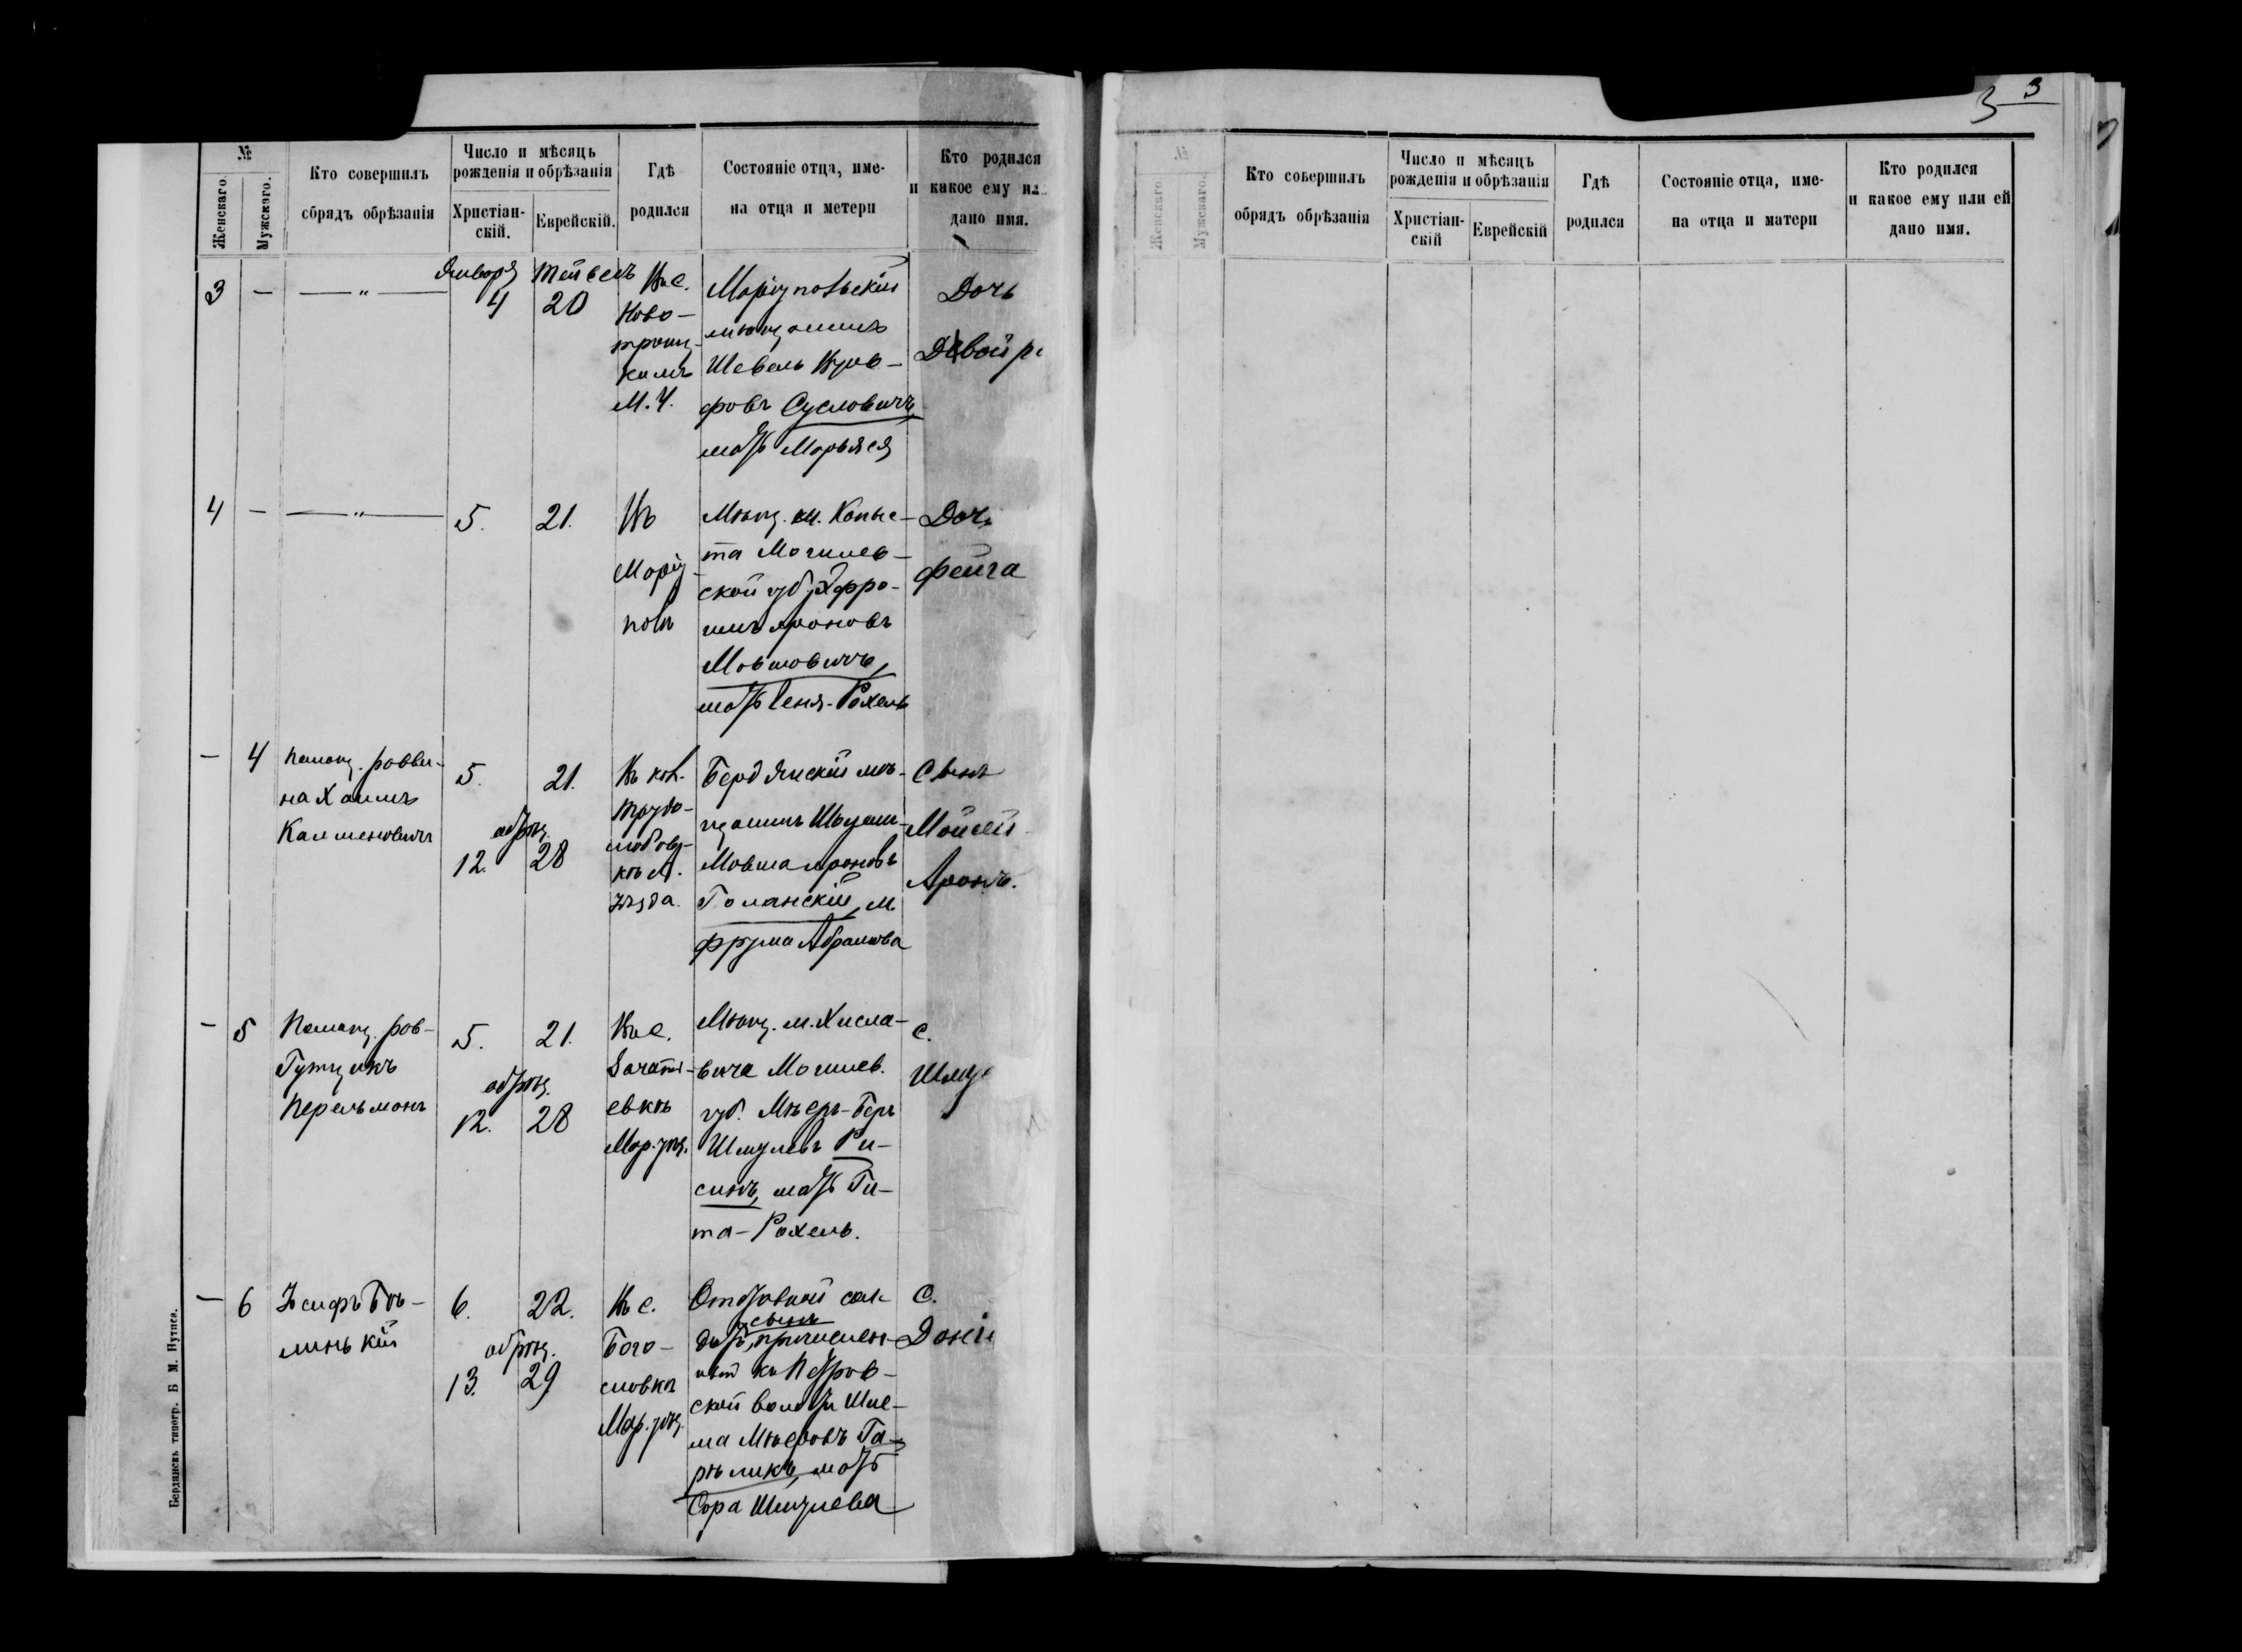 3 3
№
Женскаго.
Мужскаго.
Кто совершилъ
обрядъ обрѣзанія
Число и мѣсяцъ
рожденія и обрѣзанія
Христіан-
скій.
Еврейскій.
Гдѣ
родился
Состояніе отца, име-
на отца и метери
Кто родился
и какое ему ил
дано имя.
3 — — „ —
Января
4
Тейвесъ
20
Въ с.
Ново-
троиц-
комъ
М. У.
Маріупольскій
мѣщанинъ
Шевель
фовъ Сусловичъ,
мать Марьяся
Дочь
Двойр
4 — — „ —
5.
21.
Въ
Маріу-
полѣ
Мѣщ. м. Копыс-
та Могилев-
ской губ. Эфро-
имъ Ароновъ
Мовшовичъ,
мать Геня-Рохель
Доч
Фейга
— 4
Помощ. равви-
на Хаимъ
Калмановичъ
5.
обрѣз.
12.
21.
28
Въ кол.
Трудо-
любов-
кѣ А.
уѣзда.
Бердянскій мѣ-
щанинъ
Мовша Ароновъ
Голанскій, м.
Фрума Абрамова
Сынъ
Мойсей
Аронъ.
— 5
Помощ. рав-
Гутцикъ
Перельманъ
5.
обрѣз.
12.
21.
28
Въ с.
евкѣ
Мар. уѣз.
Мѣщ. м. Хисла-
вича Могилев.
губ. Мѣеръ-Беръ
Шмулевъ Ри-
синъ, мать Ги-
та-Рохель.
С.
Шму
— 6
Іосифъ Бѣ-
линькій
6.
обрѣз.
13.
22.
29
Въ с.
Бого-
словкѣ
Мар. уѣз.
Отставной сол-
сынъ
датъ, причислен-
ный къ Петров-
ской волости Шле-
ма Мѣеровъ Га-
рѣликъ, мать
Сора Шмулева
С.
Дані
Бердянскъ типогр. Б М. Нутиса.
№
Женскаго
Мужскаго.
Кто совершилъ
обрядъ обрѣзанія
Число и мѣсяцъ
рожденія и обрѣзанія
Христіан-
скій
Еврейскій
Гдѣ
родился
Состояніе отца, име-
на отца и матери
Кто родился
и какое ему или ей
дано имя.